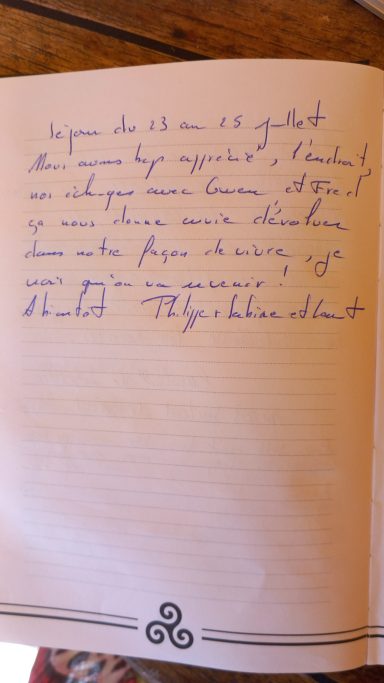 Séjour du 23 au 25 juillet
Nous avons bcp apprécié, l'endroit,
nos échanges avec Gwen, et Fred
ça nous donne envie d'évoluer
dans notre façon de vivre, je
crois qu'on va revenir !
A bientot Philippe + Sabine et